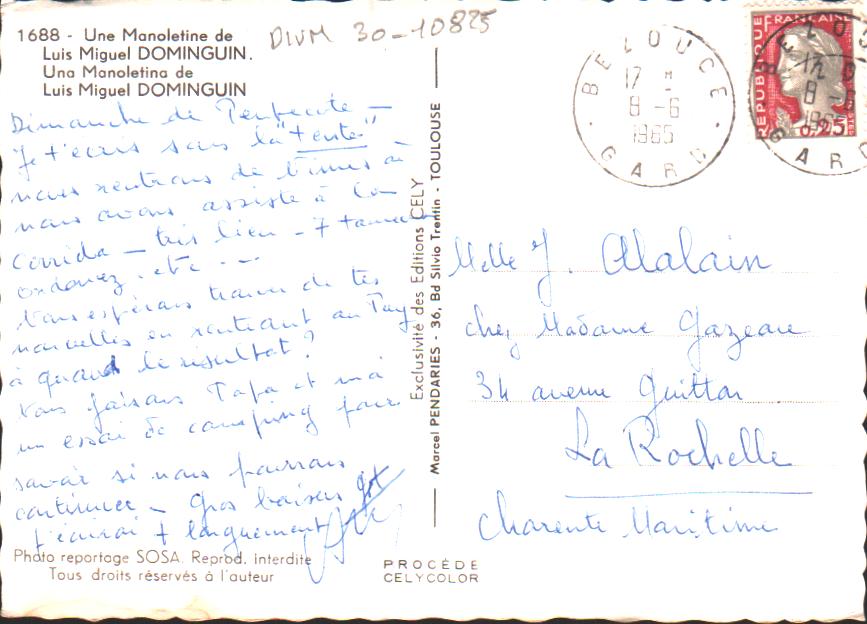 1688 - Une Manoletine de
Luis Miguel DOMINGUIN.
Una Manoletina de
Luis Miguel DOMINGUIN
DIVM 30-10825
Dimanche de Pentecôte -
Je t'écris sous la "tente"
nous rentrons de Nimes où
nous avons assisté à la
Corrida - très bien - 7 taureaux
ordonez. etc ...
Nous espérons trouver de tes
nouvelles en rentrant au Pay
à quand le résultat?
Nous faisons Papa et moi
un essai de camping pour
savoir si nous pourrons
continuer - Gros baisers
j'écrirai + longuement
Photo reportage SOSA. Reprod. interdite
Tous droits réservés à l'auteur
Exclusivité des Editions CELY
Marcel PENDARIES - 36, Bd Silvio Trentin - TOULOUSE
PROCÉDÉ
CELYCOLOR
BELOUCE
17 H
8 - 6
1965
GARD
REPUBLIQUE FRANCAISE
0,25
POSTES
Melle J. Alalain
chez Madame Gazeau
34 avenue Guitton
La Rochelle
Charente Maritime